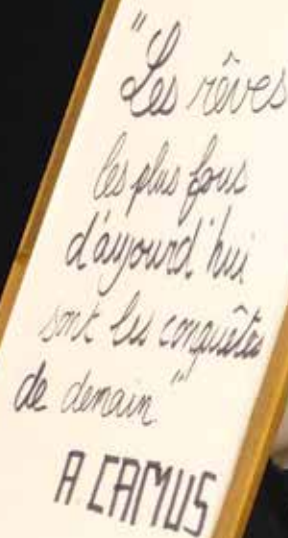 "Les rêves
les plus fous
d'aujourd'hui
sont les conquêtes
de demain"
A CAMUS